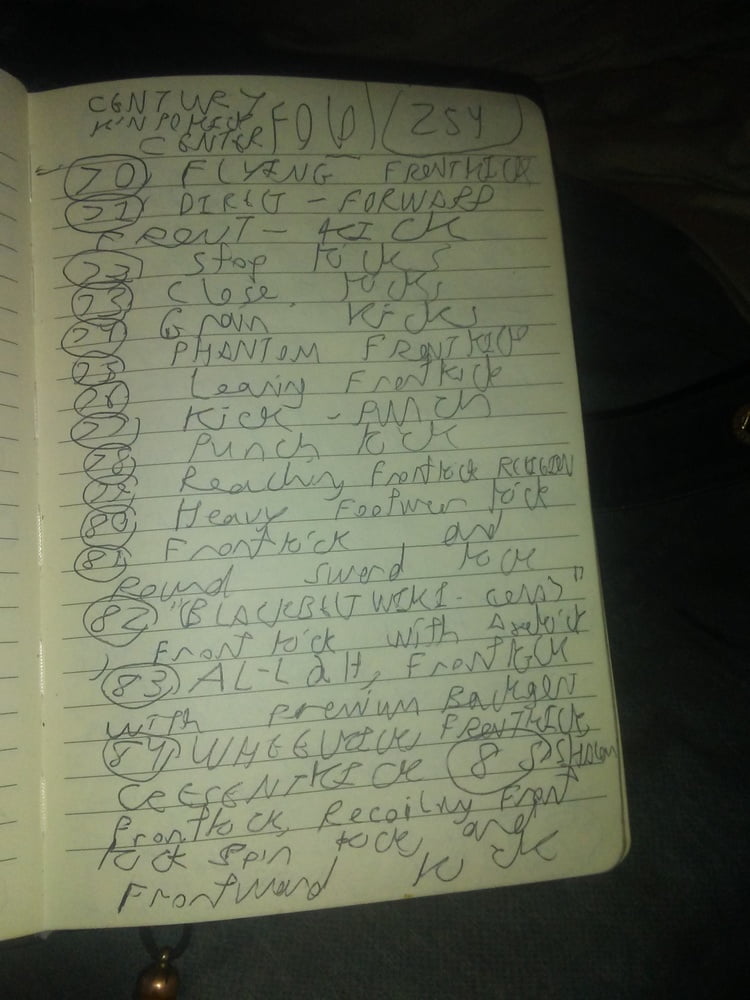 CENTURY
CENTER (254)
70 FLYING FRONTKICK
71 DIRECT - FORWARD
FRONT - KICK
72 Stop KICKS
73 Close KICKS
74 Groin KICKS
75 PHANTOM FRONTKICK
76 Leaning Frontkick
77 KICK - PUNCH
78 Punch kick
79 Reaching Frontkick
80 Heavy kick
81 Frontkick and
Round Sword kick
82 "BLACKBELTWIKI
Front kick with Axekick
83 AL-LAH, Frontkick
with premium
84 FRONTKICK,
85
Frontkick, Recoiling Front
kick Spin kick and
Frontward kick